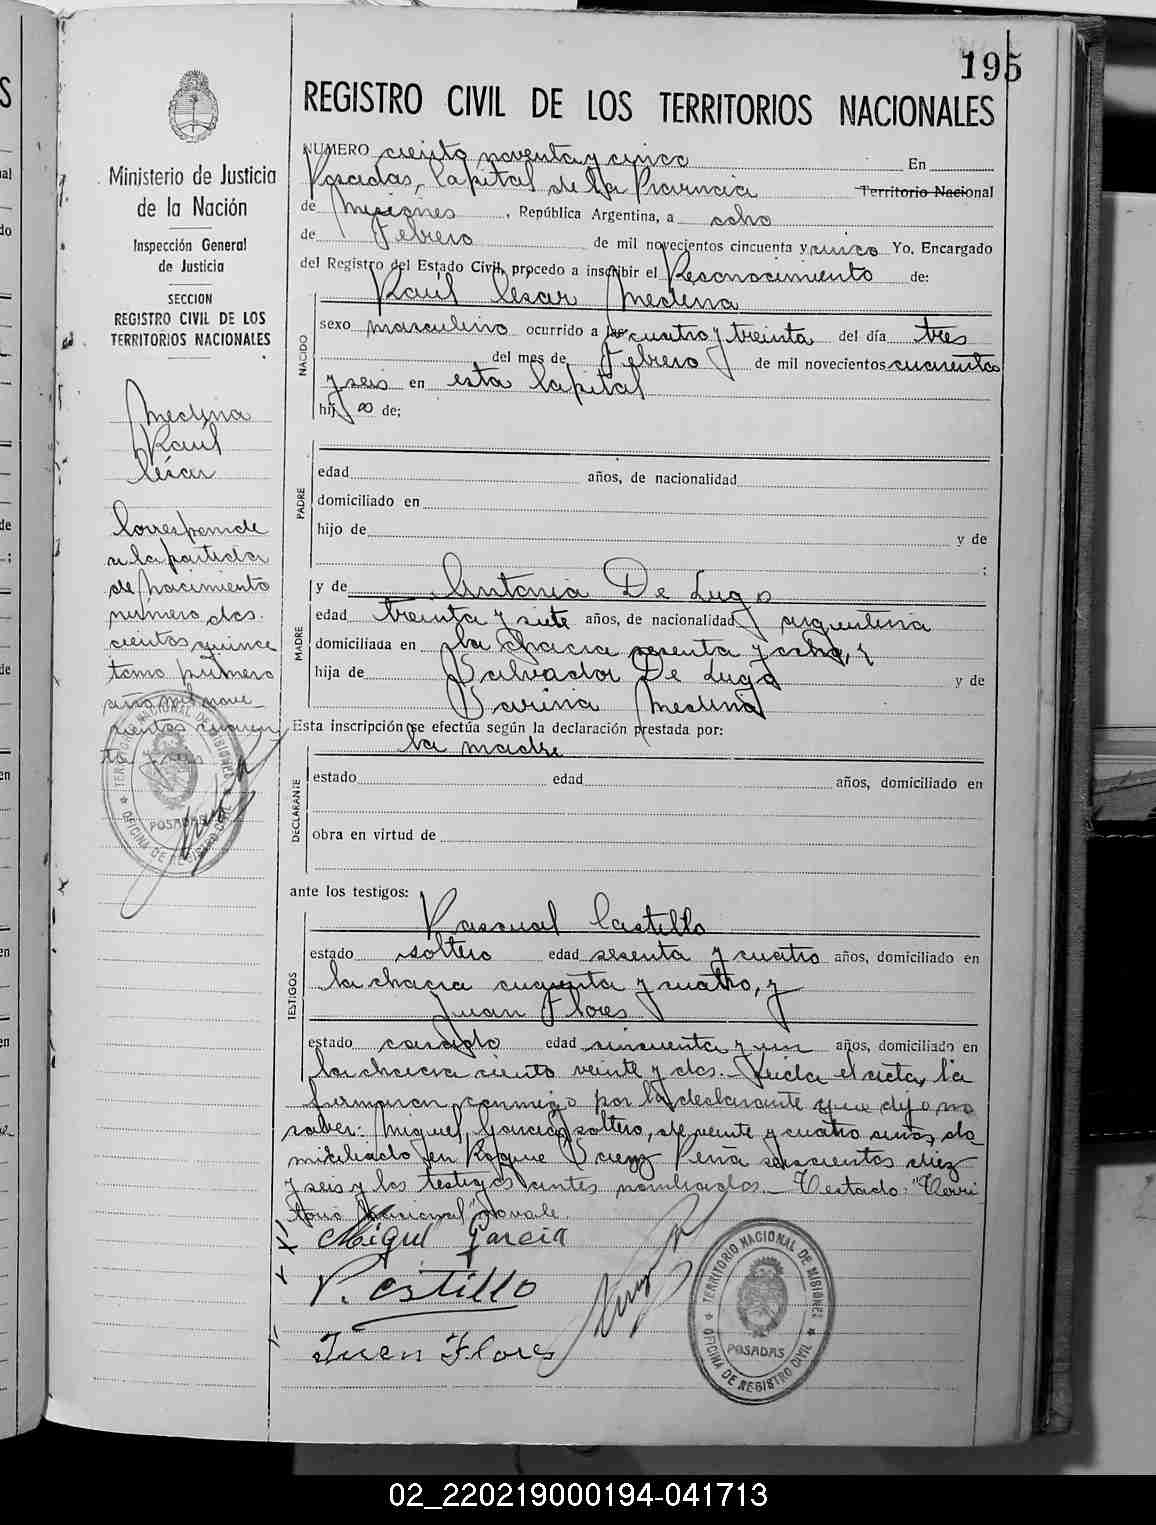 195
REGISTRO CIVIL DE LOS TERRITORIOS NACIONALES
Ministerio de Justicia
de la Nación
Inspección General
de Justicia
SECCION
REGISTRO CIVIL DE LOS
TERRITORIOS NACIONALES
Medina
Raúl
César
Corresponde
a la partida
de nacimiento
numero dos-
cientos quince
tomo primero
año mil nove-
cientos cuaren
ta
TERRITORIO NACIONAL DE MISIONES
POSADAS
OFICINA DE REGISTRO CIVIL
NUMERO ciento noventa y cinco En
Posadas, Capital de la Provincia Territorio Nacional
de Misiones, República Argentina, a ocho
de Febrero de mil novecientos cincuenta y cinco Yo, Encargado
del Registro del Estado Civil, procedo a inscribir el Reconocimiento de:
Raúl César Medina
NACIDO
sexo masculino ocurrido a las cuatro y treinta del día tres
del mes de Febrero de mil novecientos cuarenta
y seis en esta Capital
hij o de;
PADRE
edad años, de nacionalidad
domiciliado en
hijo de y de
;
MADRE
y de Antonia De Lugo
edad treinta y siete años, de nacionalidad argentina
domiciliada en la chacra sesenta y ocho,
hija de Salvador De Lugo y de
Medina
Esta inscripción se efectúa según la declaración prestada por:
la madre
DECLARANTE
estado edad años, domiciliado en
obra en virtud de
ante los testigos:
TESTIGOS
Pascual Castillo
estado soltero edad sesenta y cuatro años, domiciliado en
la chacra y cuatro, y
Juan Flores
estado casado edad cincuenta y un años, domiciliado en
la chacra ciento veinte y dos.- Leida el acta, la
firmaron conmigo por la declarante que dijo no
saber: Miguel García, soltero, de veinte y cuatro años, do
miciliado en Roque Saenz Peña seiscientos diez
y seis y los testigos antes nombrados.- Testado: "Terri
torio Nacional" no vale.
Miguel Garcia
P. Castillo
Juan Flores
TERRITORIO NACIONAL DE MISIONES
POSADAS
OFICINA DE REGISTRO CIVIL
02_220219000194-041713